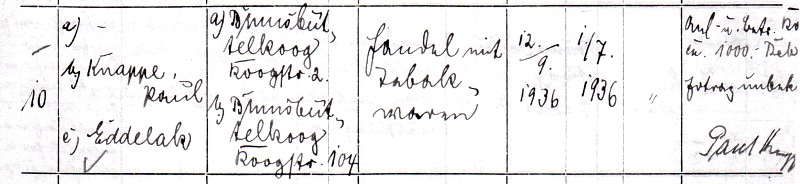 10
a) -
b) Knappe,
Paul
c) Eddelak
a) Brunsbüt,
telkoog
Koogstr. 2.
b) Brunsbüt,
telkoog
Koogstr. 104
Handel mit
Tabak,
waren
12.
9.
1936
1/7.
1936
"
Anf.- u. betr.
ca. 1000.-
Ertrag unbek
Paul